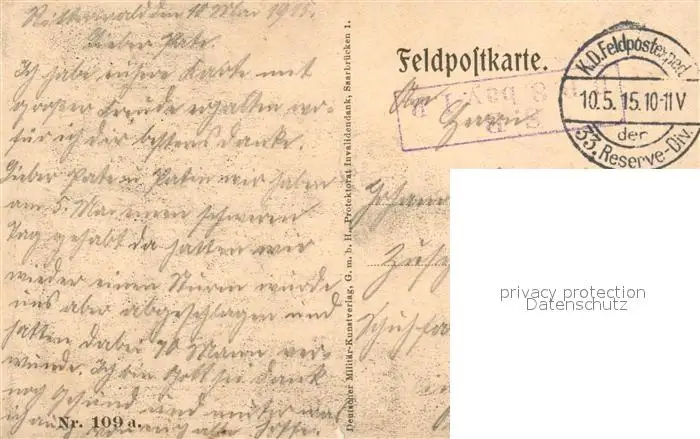 Ritterwald den 10 Mai 1915.
Lieber Pate.
Ich habe euhere Karte mit
großer Freude erhalten wo-
für ich dir bestens danke.
Lieber Pate u Paten wir haben
am 5. Mai einen schweren
Tag gehabt da hatten wir
wieder einen Sturm wurde
uns aber abgeschlagen und
hatten dabei 70 Mann ver-
wunde. Ich bin Gott sei dank
noch gesund und munter was
ich auch von euch alle hoffe.
Nr. 109 a.
Deutscher Militär-Kunstverlag, G. m. b. H., Protektorat Invalidendank, Saarbrücken 1.
Feldpostkarte.
An
Herrn
K.D. Feldpostexped.
10.5.15.10-11V
der
33. Reserve-Div.
8 bay.
Johann
privacy protection
Datenschutz